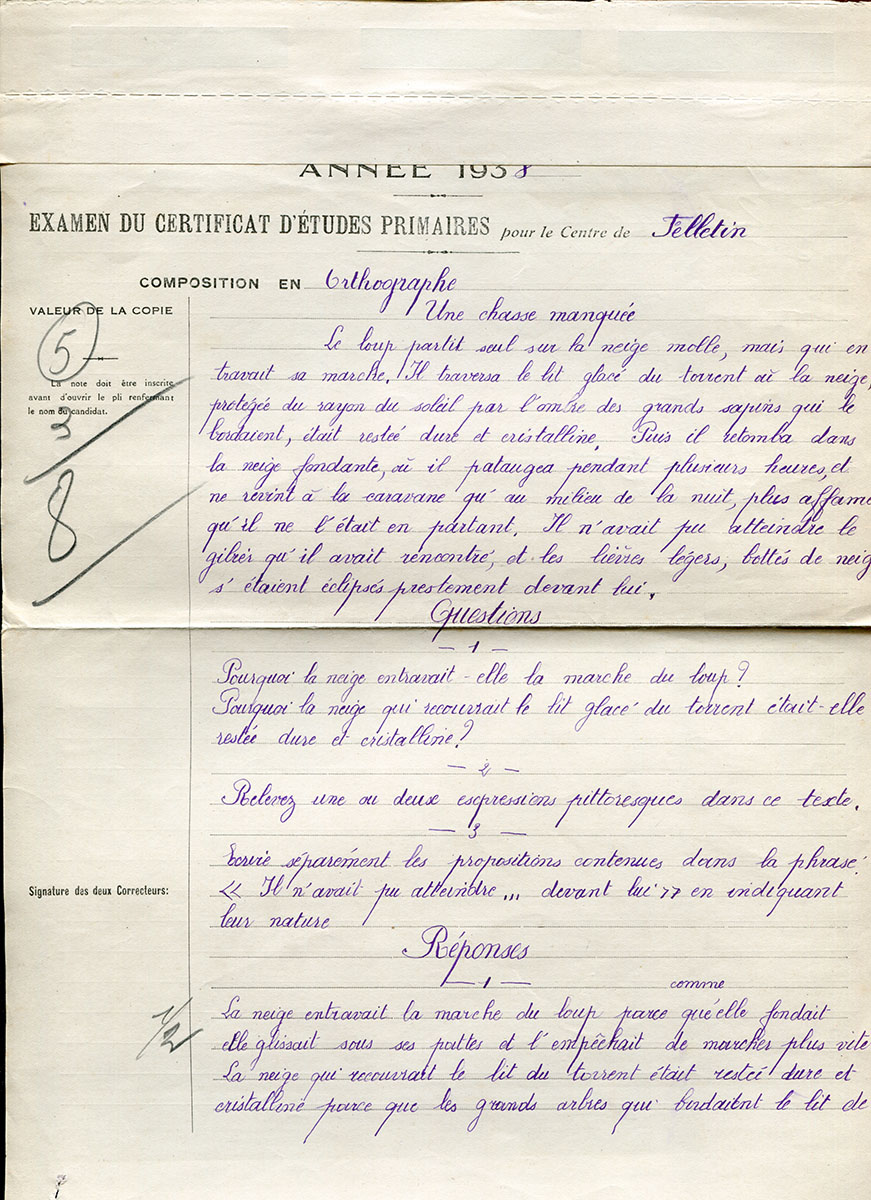 ANNÉE 1938
EXAMEN DU CERTIFICAT D'ÉTUDES PRIMAIRES pour le Centre de Felletin
COMPOSITION EN Orthographe
VALEUR DE LA COPIE
5
La note doit être inscrite
avant d'ouvrir le pli renfermant
le nom du candidat.
3
8
Une chasse manquée
Le loup partit seul sur la neige molle, mais qui en
travait sa marche. Il traversa le lit glacé du torrent où la neige,
protégée du rayon du soleil par l'ombre des grands sapins qui le
bordaient, était restée dure et cristalline. Puis il retomba dans
la neige fondante, où il pataugea pendant plusieurs heures, et
ne revint à la caravane qu'au milieu de la nuit, plus affamé
qu'il ne l'était en partant. Il n'avait pu atteindre le
gibier qu'il avait rencontré, et les lièvres légers, bottés de neig
s'étaient éclipsés prestement devant lui.
Questions
- 1 -
Pourquoi la neige entravait-elle la marche du loup?
Pourquoi la neige qui recouvrait le lit glacé du torrent était-elle
restée dure et cristalline?
- 2 -
Relevez une ou deux expressions pittoresques dans ce texte.
- 3 -
Ecrire séparément les propositions contenues dans la phrase:
« Il n'avait pu atteindre ... devant lui » en indiquant
leur nature
Signature des deux Correcteurs:
Réponses
- 1 -
comme
La neige entravait la marche du loup parce qu'elle fondait
elle glissait sous ses pattes et l'empêchait de marcher plus vite
La neige qui recouvrait le lit du torrent était restée dure et
cristalline parce que les grands arbres qui bordaient le lit de
1/2